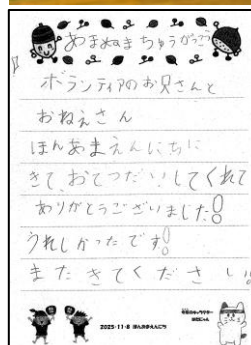 あまぬまちゅうがっこう
ボランティアのお兄さんと
おねえさん
ほんあまえんにちに
きて、おてつだいしてくれて
ありがとうございました!!
うれしかったです!!
またきてください!!
2025・11・8 ほんあまえんにち